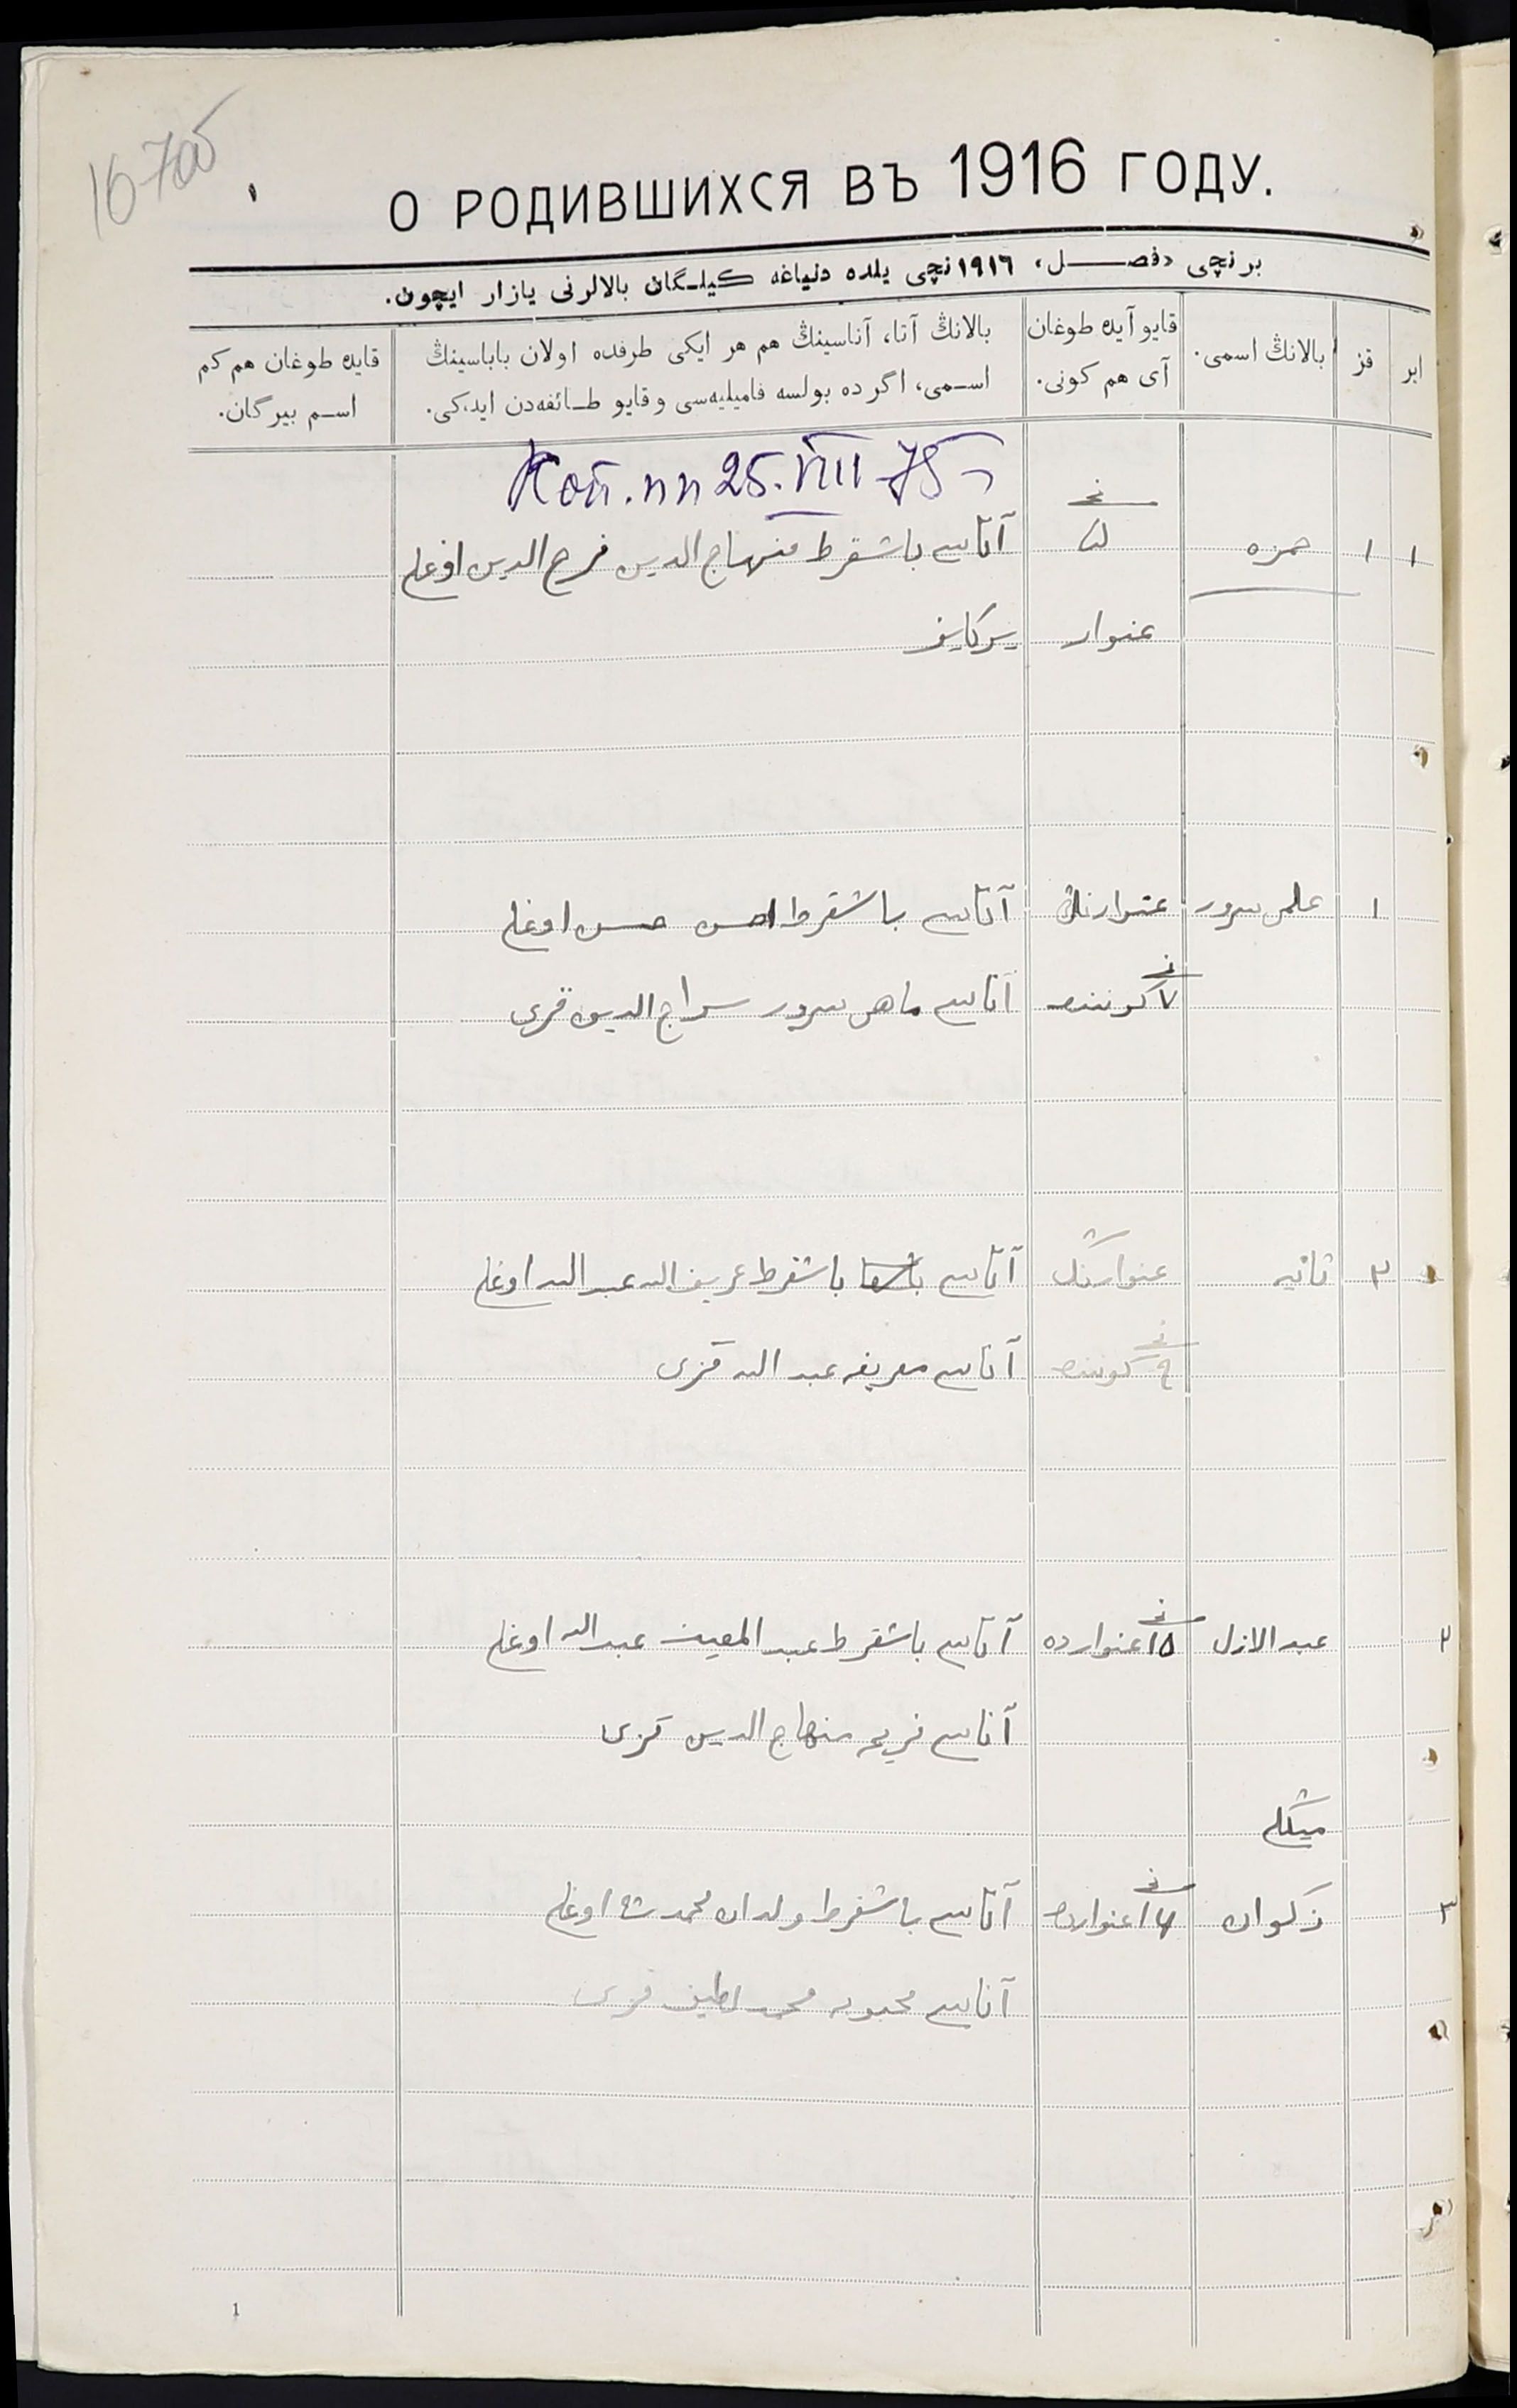 16700
О РОДИВШИХСЯ ВЪ 1916 ГОДУ.
برنچی «فصل» ۱۹۱۶نچی یلده دنیاغه کیلگان بالالرنی یازار ایچون.
ایر
قز
بالانڭ اسمی.
قایو آیده طوغان
آی هم کونی.
بالانڭ آتا، آناسینڭ هم هر ایکی طرفده اولان باباسینڭ
اسمی، اگرده بولسه فامیلیه‌سی و قایو طائفه‌دن ایدکی.
قایده طوغان هم کم
اسم بیرگان.
Коп. пп 25.VIII-75
۱ ۱ حمزه آتاسی باشقرط منهاج الدین فرح الدین اوغلی
عنوار
۱ علمی سرور عنوارنڭ آتاسی باشقرط حسن اوغلی
۷نچی کوننده آناسی ماهی سرور سراج الدین قزی
۲ ثانیه عنوارنڭ آتاسی باشقرط عریف الله عبد الله اوغلی
۹نچی کوننده آناسی معریفه عبد الله قزی
۲ عبد الازل ۱۵نچی عنوارده آتاسی باشقرط عبد المعین عبد الله اوغلی
آناسی فریحه منهاج الدین قزی
۳ ذکوان ۱۶نچی عنوارده آتاسی باشقرط ولدان محمدشاه اوغلی
آناسی محبوبه محمد لطیف قزی
1